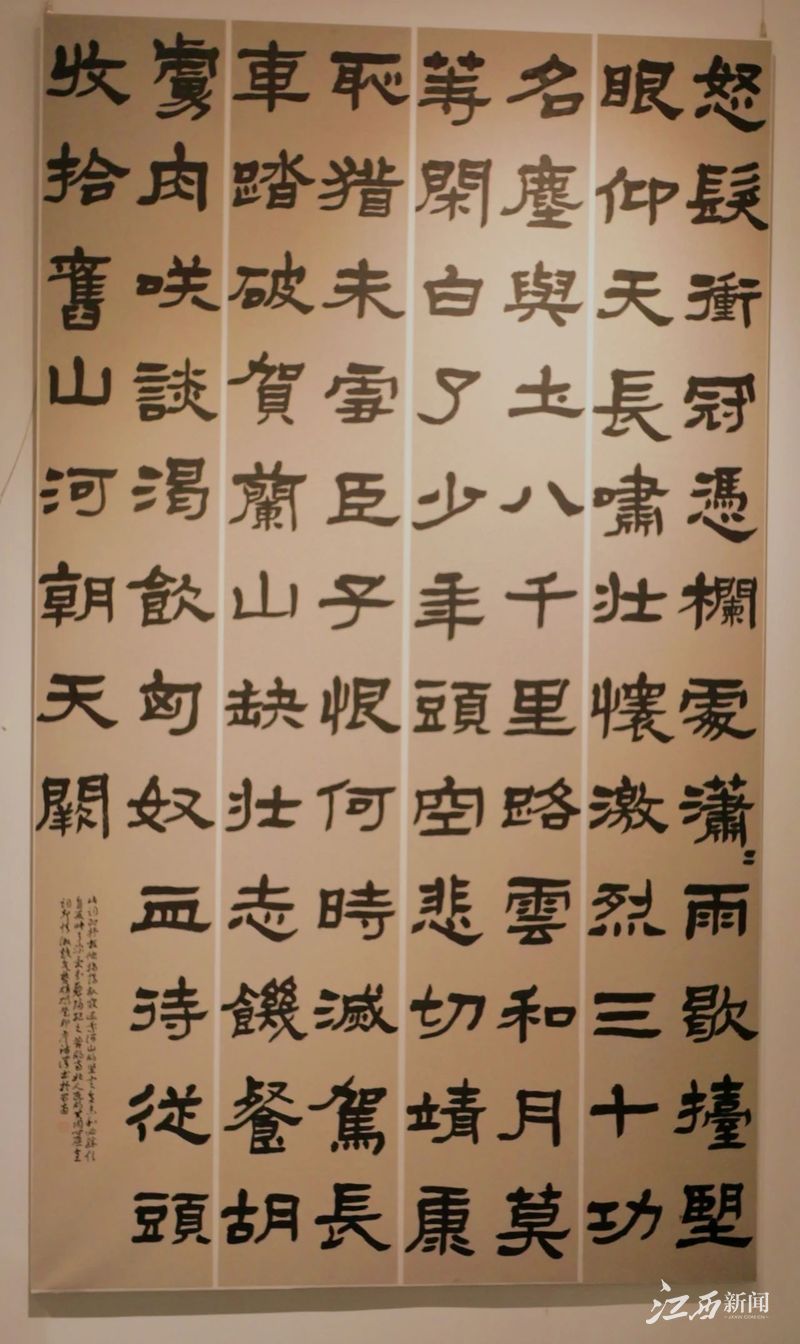 怒髮衝冠憑欄處瀟〻雨歇擡望
眼仰天長嘯壯懷激烈三十功
名塵與土八千里路雲和月莫
等閑白了少年頭空悲切靖康
恥猶未雪臣子恨何時滅駕長
車踏破賀蘭山缺壯志饑餐胡
虜肉笑談渴飲匈奴血待從頭
收拾舊山河朝天闕
江西新闻
JXXW.COM.CN